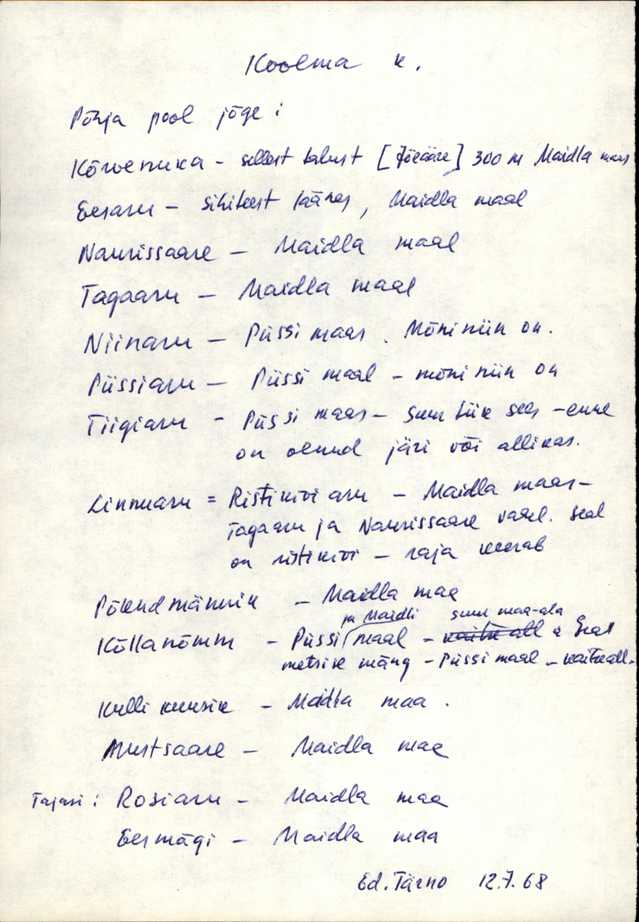 Koolma k.
Põhja pool jõge:
Kõrvenuka - sellest talust [Jõeääre] 300 m Maidla maas
Eesaru - sihiteest läänes, Maidla maal
Naurissaare - Maidla maal
Tagaaru - Maidla maal
Niinaru - Püssi maas. Mõni niin on.
Püssiaru - Püssi maal - mõni niin on
Tiigiaru - Püssi maas - suur tiik sees - enne
on olnud järv või allikas.
Linnuaru = Ristikivi aru - Maidla maas -
Tagaaru ja Naurissaare vahel. Seal
on ristikivi - raja keerab
Põlendmännik - Maidla maa
ja Maidli suur maa-ala
Kõllanõmm - Püssi maal - kaitse all Seal
metsise mäng - Püssi maal - kaitseall.
Kulli kuusik - Maidla maa.
Mustsaare - Maidla maa
Tajasi: Rosiaru - Maidla maa
Eesmägi - Maidla maa
Ed. Tärno 12.7.68